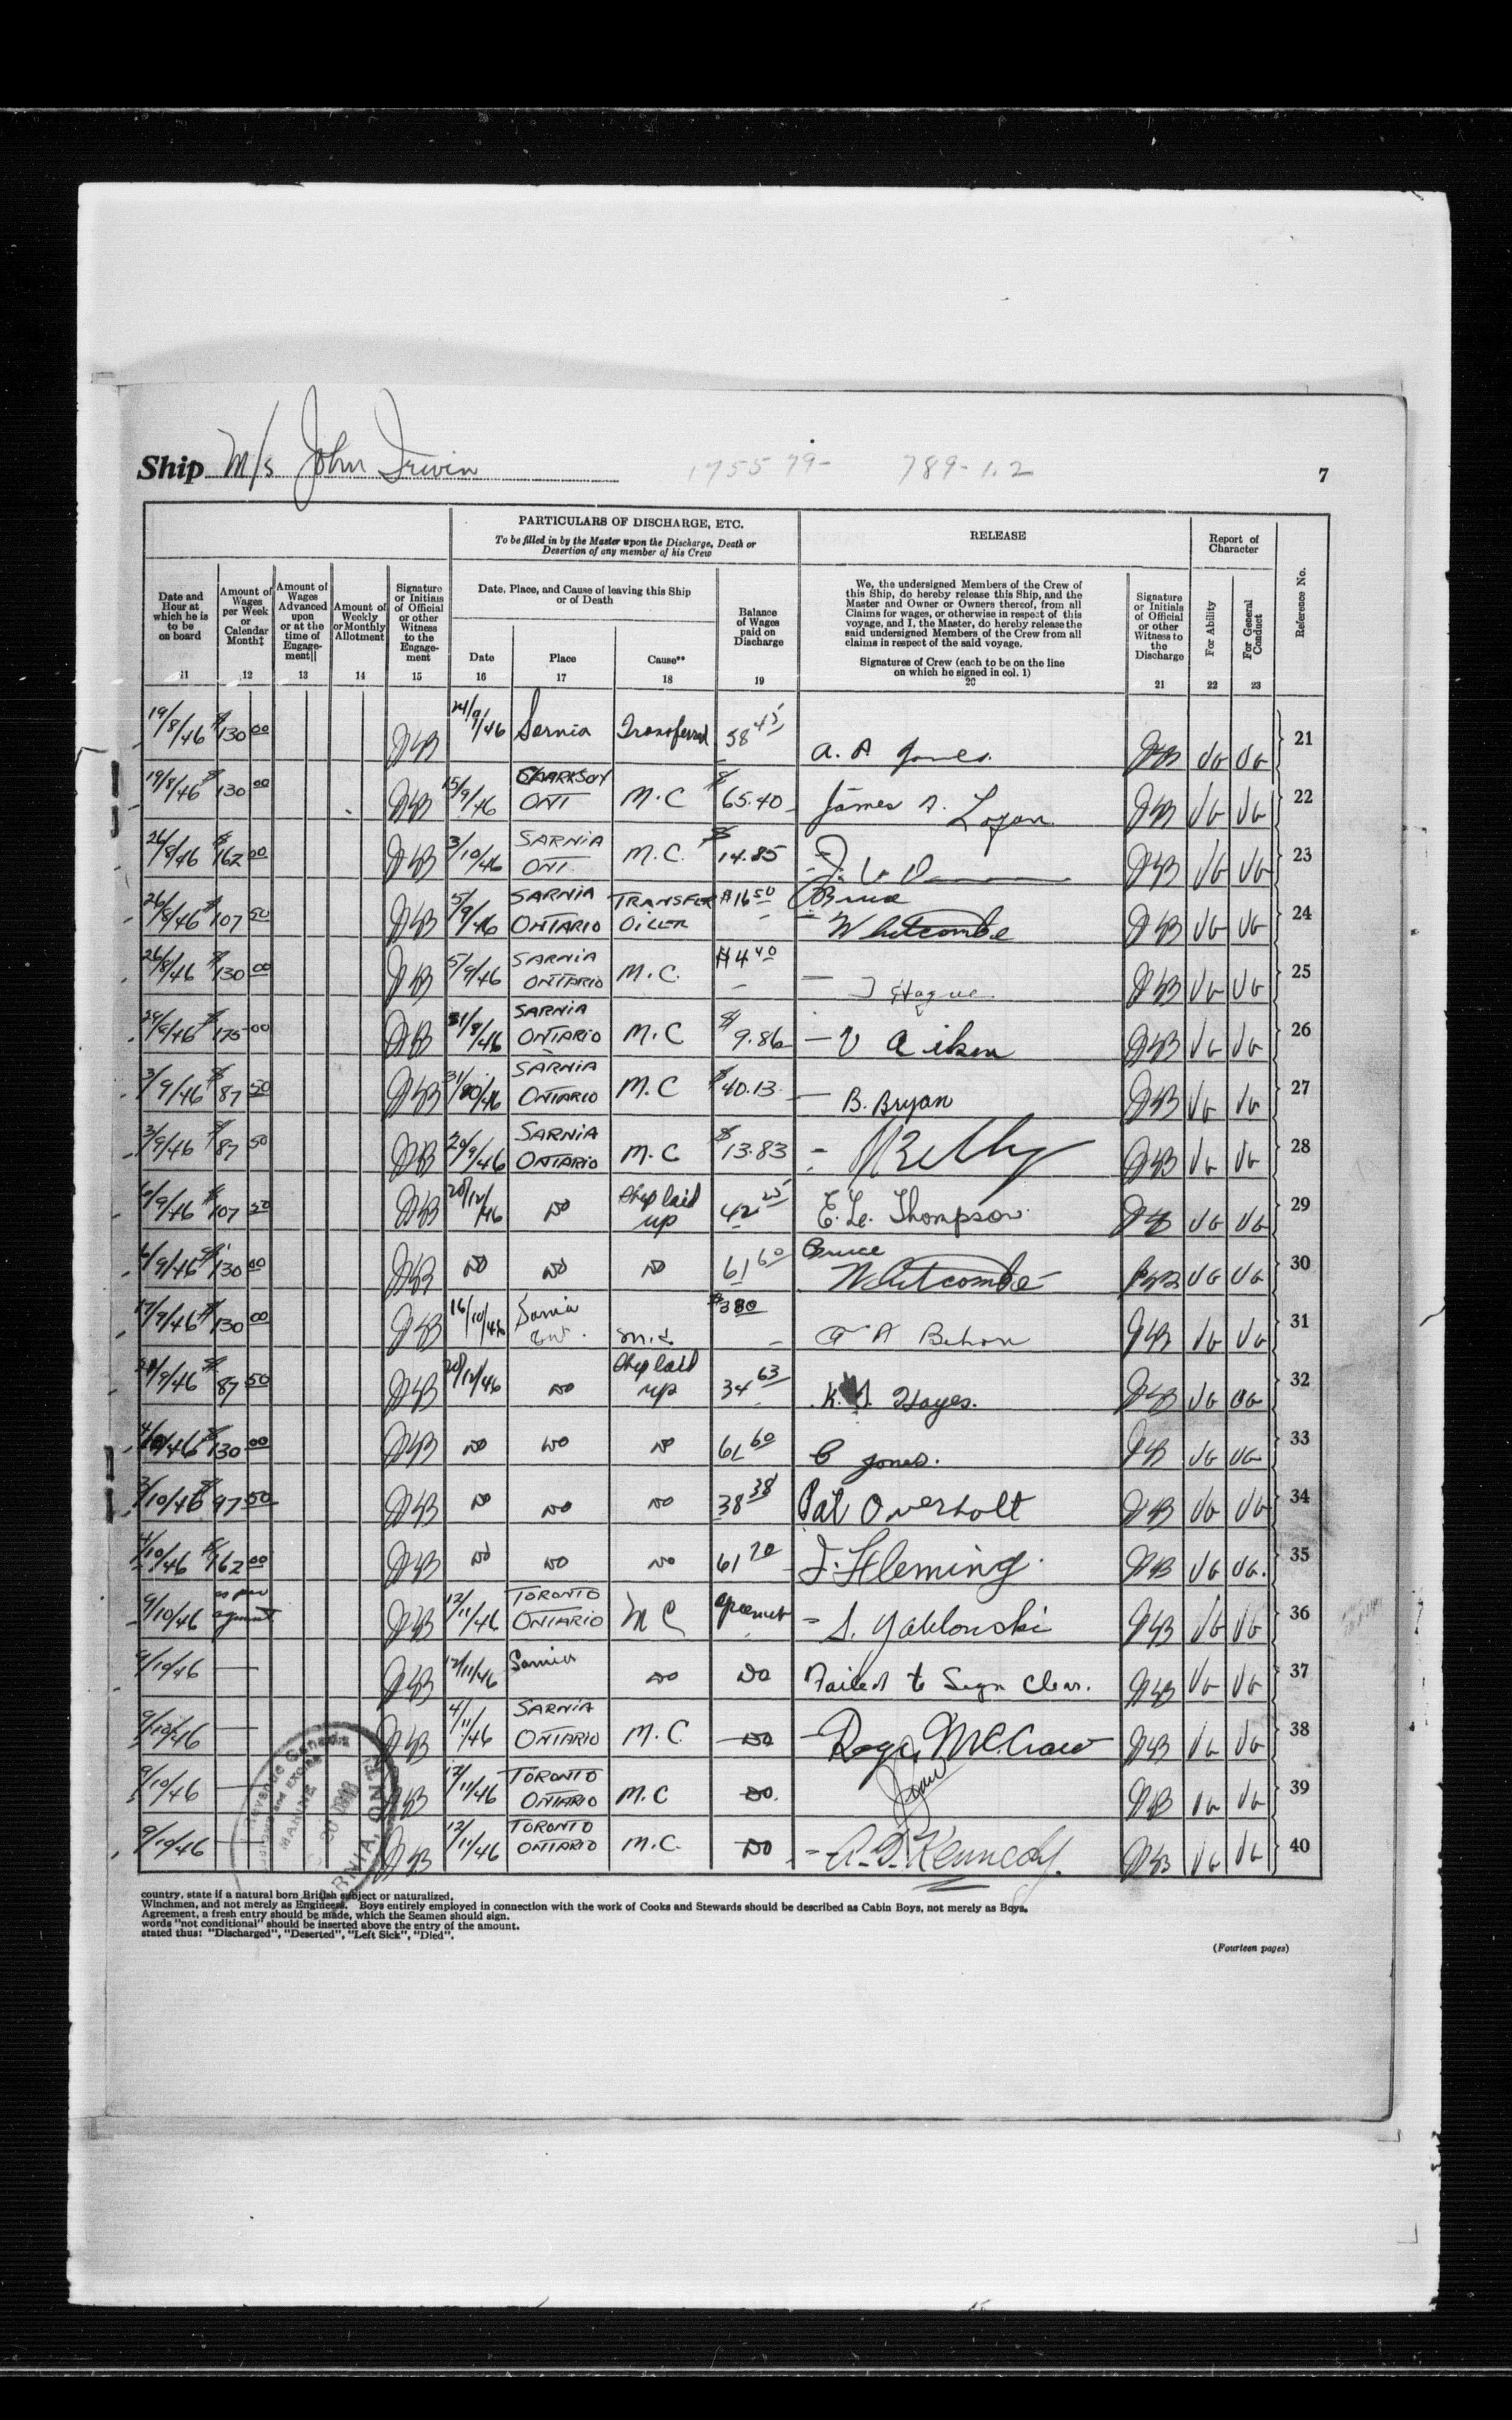 Ship M/s John Irwin
1755 79- 789-1.2
7
PARTICULARS OF DISCHARGE, ETC.
To be filled in by the Master upon the Discharge, Death or
Desertion of any member of his Crew
RELEASE
Report of
Character
Reference No.
Date and
Hour at
which he is
to be
on board
11
Amount of
Wages
per Week
or
Calendar
Month‡
12
Amount of
Wages
Advanced
upon
or at the
time of
Engage-
ment||
13
Amount of
Weekly
or Monthly
Allotment
14
Signature
or Initials
of Official
or other
Witness
to the
Engage-
ment
15
Date, Place, and Cause of leaving this Ship
or of Death
Date
16
Place
17
Cause**
18
Balance
of Wages
paid on
Discharge
19
We, the undersigned Members of the Crew of
this Ship, do hereby release this Ship, and the
Master and Owner or Owners thereof, from all
Claims for wages, or otherwise in respect of this
voyage, and I, the Master, do hereby release the
said undersigned Members of the Crew from all
claims in respect of the said voyage.
Signatures of Crew (each to be on the line
on which he signed in col. 1)
20
Signature
or Initials
of Official
or other
Witness to
the
Discharge
21
For Ability
22
For General
Conduct
23
19/8/46 $130 00 24/9/46 Sarnia Transferred 58 45 A. A Jones. VG VG 21
19/8/46 $130 00 15/9/46 CLARKSON ONT M.C $65.40 James A. Logan VG VG 22
26/8/46 $162 00 3/10/46 SARNIA ONT M.C. $14.85 VG VG 23
26/8/46 $107 50 5/9/46 SARNIA ONTARIO TRANSFER OILER $16 50 Bruce Whitcombe VG VG 24
26/8/46 $130 00 5/9/46 SARNIA ONTARIO M.C. $4 40 J Hague VG VG 25
$175 00 31/8/46 SARNIA ONTARIO M.C $9.86 V Aiken VG VG 26
3/9/46 $87 50 SARNIA ONTARIO M.C $40.13 B. Bryan VG VG 27
3/9/46 $87 50 20/9/46 SARNIA ONTARIO M.C $13.83 VG VG 28
6/9/46 $107 50 20/12/46 DO Ship laid up 42 25 E. Le. Thompson VG VG 29
6/9/46 $130 00 DO DO DO 61 60 Bruce Whitcombe VG VG 30
17/9/46 $130 00 16/10/46 Sarnia Ont. M.C $3 80 VG VG 31
$87 50 20/12/46 DO Ship laid up 34 63 Hayes. VG VG 32
$130 00 DO DO DO 61 60 C Jones. VG VG 33
3/10/46 $97 50 DO DO DO 38 38 Pat Overholt VG VG 34
4/10/46 $162 00 DO DO DO 61 20 J. Fleming VG VG. 35
9/10/46 as per agreement 12/11/46 TORONTO ONTARIO M C S. Yablonski VG VG 36
9/10/46 — 12/11/46 Sarnia DO DO Failed to Sign Clear. VG VG 37
9/10/46 — 4/11/46 SARNIA ONTARIO M.C. DO McCraw VG VG 38
9/10/46 — 12/11/46 TORONTO ONTARIO M.C DO. VG VG 39
9/10/46 — 12/11/46 TORONTO ONTARIO M.C. DO Kennedy. VG VG 40
country, state if a natural born British subject or naturalized.
Winchmen, and not merely as Engineers. Boys entirely employed in connection with the work of Cooks and Stewards should be described as Cabin Boys, not merely as Boys.
Agreement, a fresh entry should be made, which the Seamen should sign.
words "not conditional" should be inserted above the entry of the amount.
stated thus: "Discharged", "Deserted", "Left Sick", "Died".
(Fourteen pages)